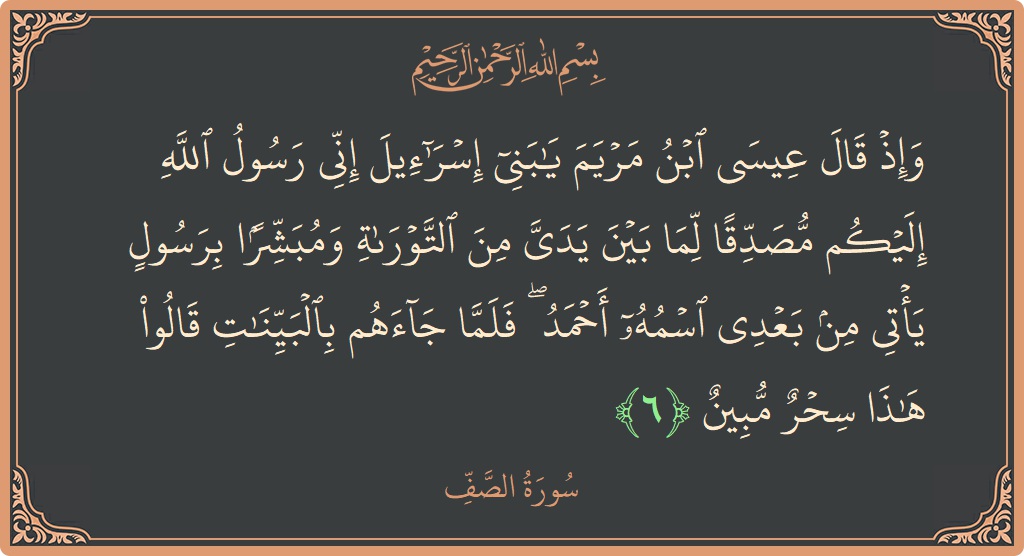 بِسْمِ اللَّهِ الرَّحْمَٰنِ الرَّحِيمِ
وَإِذۡ قَالَ عِيسَى ٱبۡنُ مَرۡيَمَ يَٰبَنِيٓ إِسۡرَٰٓءِيلَ إِنِّي رَسُولُ ٱللَّهِ
إِلَيۡكُم مُّصَدِّقٗا لِّمَا بَيۡنَ يَدَيَّ مِنَ ٱلتَّوۡرَىٰةِ وَمُبَشِّرَۢا بِرَسُولٖ
يَأۡتِي مِنۢ بَعۡدِي ٱسۡمُهُۥٓ أَحۡمَدُۖ فَلَمَّا جَآءَهُم بِٱلۡبَيِّنَٰتِ قَالُواْ
هَٰذَا سِحۡرٞ مُّبِينٞ ﴿٦﴾
سُورَةُ الصَّفِّ